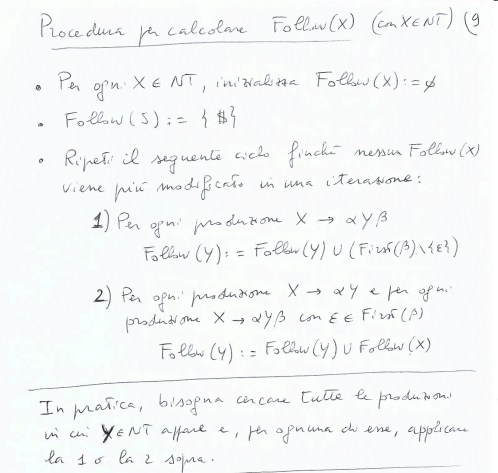 Procedura per calcolare Follow(X) (con X∈NT) (9
• Per ogni X ∈ NT, inizializza Follow(X) := ∅
• Follow(S) := {$}
• Ripeti il seguente ciclo finché nessun Follow(X)
viene più modificato in una iterazione:
1) Per ogni produzione X → αYβ
Follow(Y) := Follow(Y) ∪ (First(β)\{ε})
2) Per ogni produzione X → αY e per ogni
produzione X → αYβ con ε ∈ First(β)
Follow(Y) := Follow(Y) ∪ Follow(X)
In pratica, bisogna cercare tutte le produzioni
in cui Y∈NT appare e, per ognuna di esse, applicare
la 1 o la 2 sopra.